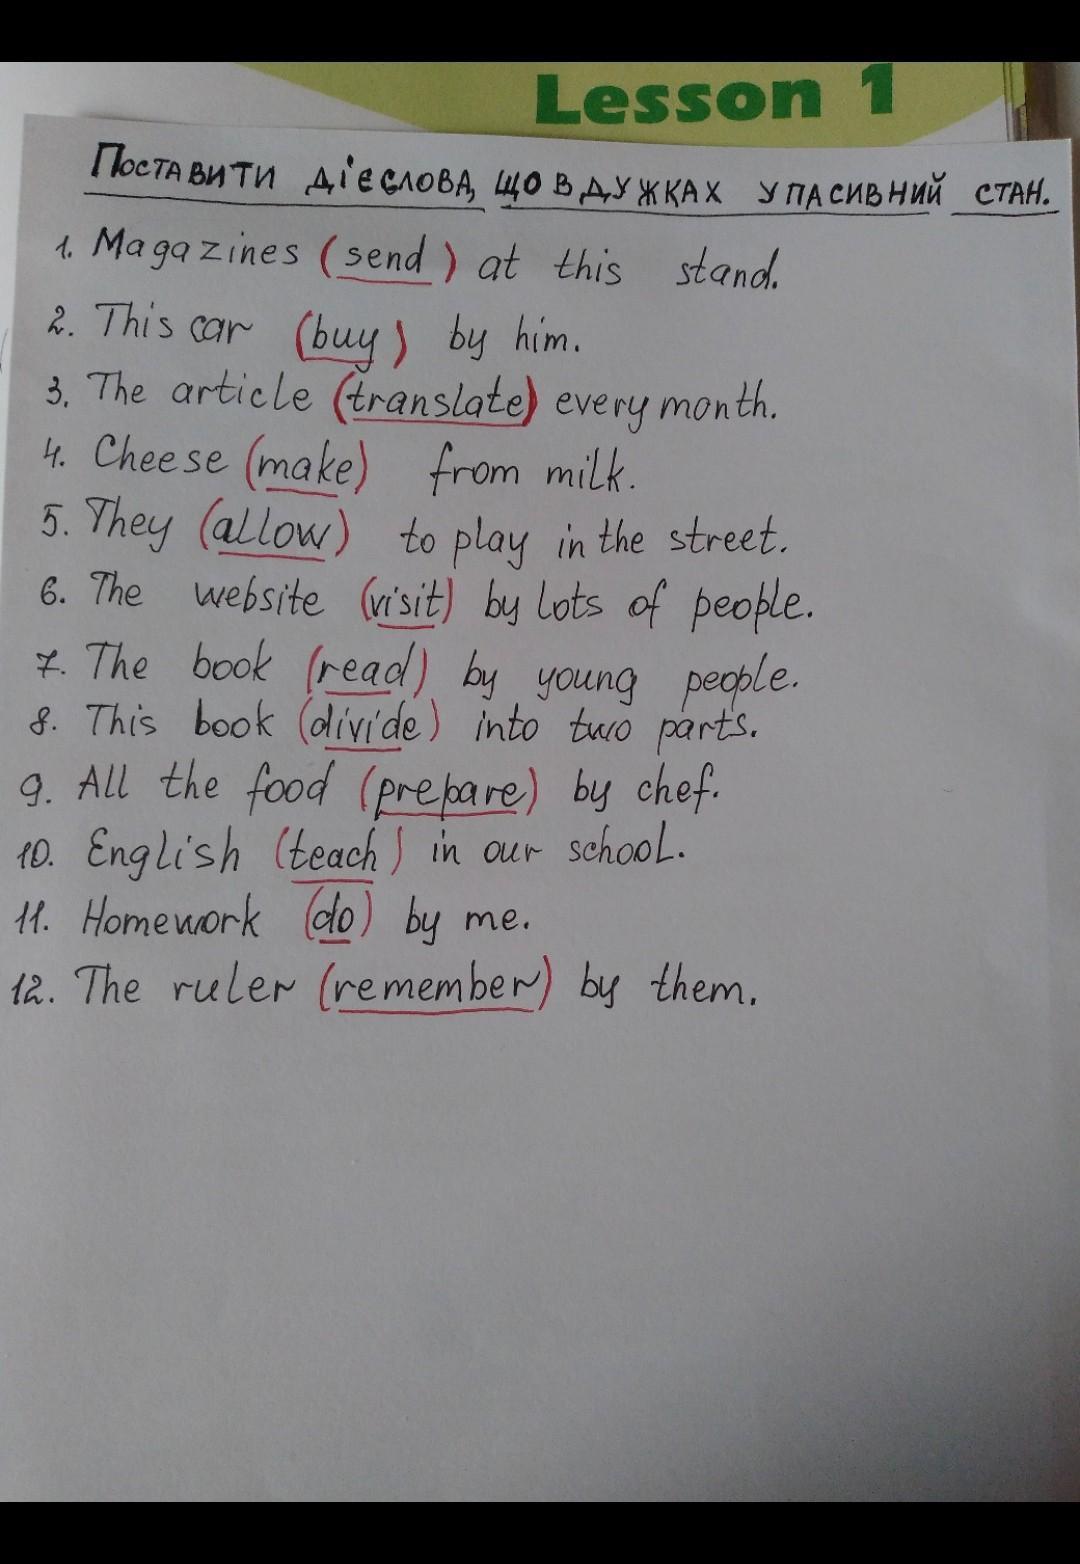 Lesson 1
Поставити дієслова, що в дужках у пасивний стан.
1. Magazines (send) at this stand.
2. This car (buy) by him.
3. The article (translate) every month.
4. Cheese (make) from milk.
5. They (allow) to play in the street.
6. The website (visit) by lots of people.
7. The book (read) by young people.
8. This book (divide) into two parts.
9. All the food (prepare) by chef.
10. English (teach) in our school.
11. Homework (do) by me.
12. The ruler (remember) by them.